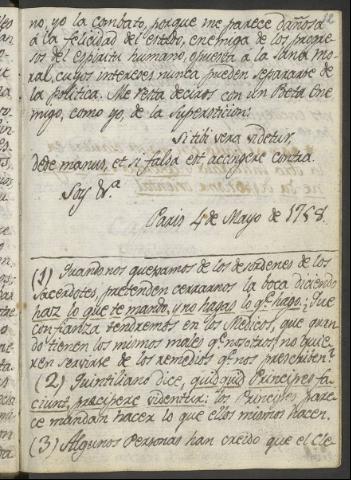 no, yo la combato, porque me parece dañosa
a la felicidad del estado, enemiga de los progre-
sos del espiritu humano, opuesta a la sana mo-
ral, cuyos intereses nunca pueden separarse de
la politica. Me resta deciros con un Poeta ene-
migo, como yo, de la Supersticion:
Si tibi vera videtur,
dede manus, et si falsa est accingere contra.
Soy &.ª
Paris 4 de Mayo de 1758.
(1) Quando nos quexamos de los desordenes de los
Sacerdotes, pretenden cerrarnos la boca diciendo
haz lo que te mando, y no hagas lo q.e hago: Que
confianza tendremos en los Medicos, que quan-
do tienen los mismos males q.e nosotros, no quie-
ren servirse de los remedios q.e nos prescriben?
(2) Quintiliano dice, quidquid Principes fa-
ciunt, præcipere videntur: los Principes pare-
ce mandan hacer lo que ellos mismos hacen.
(3) Algunos Personas han creido que el Cle-